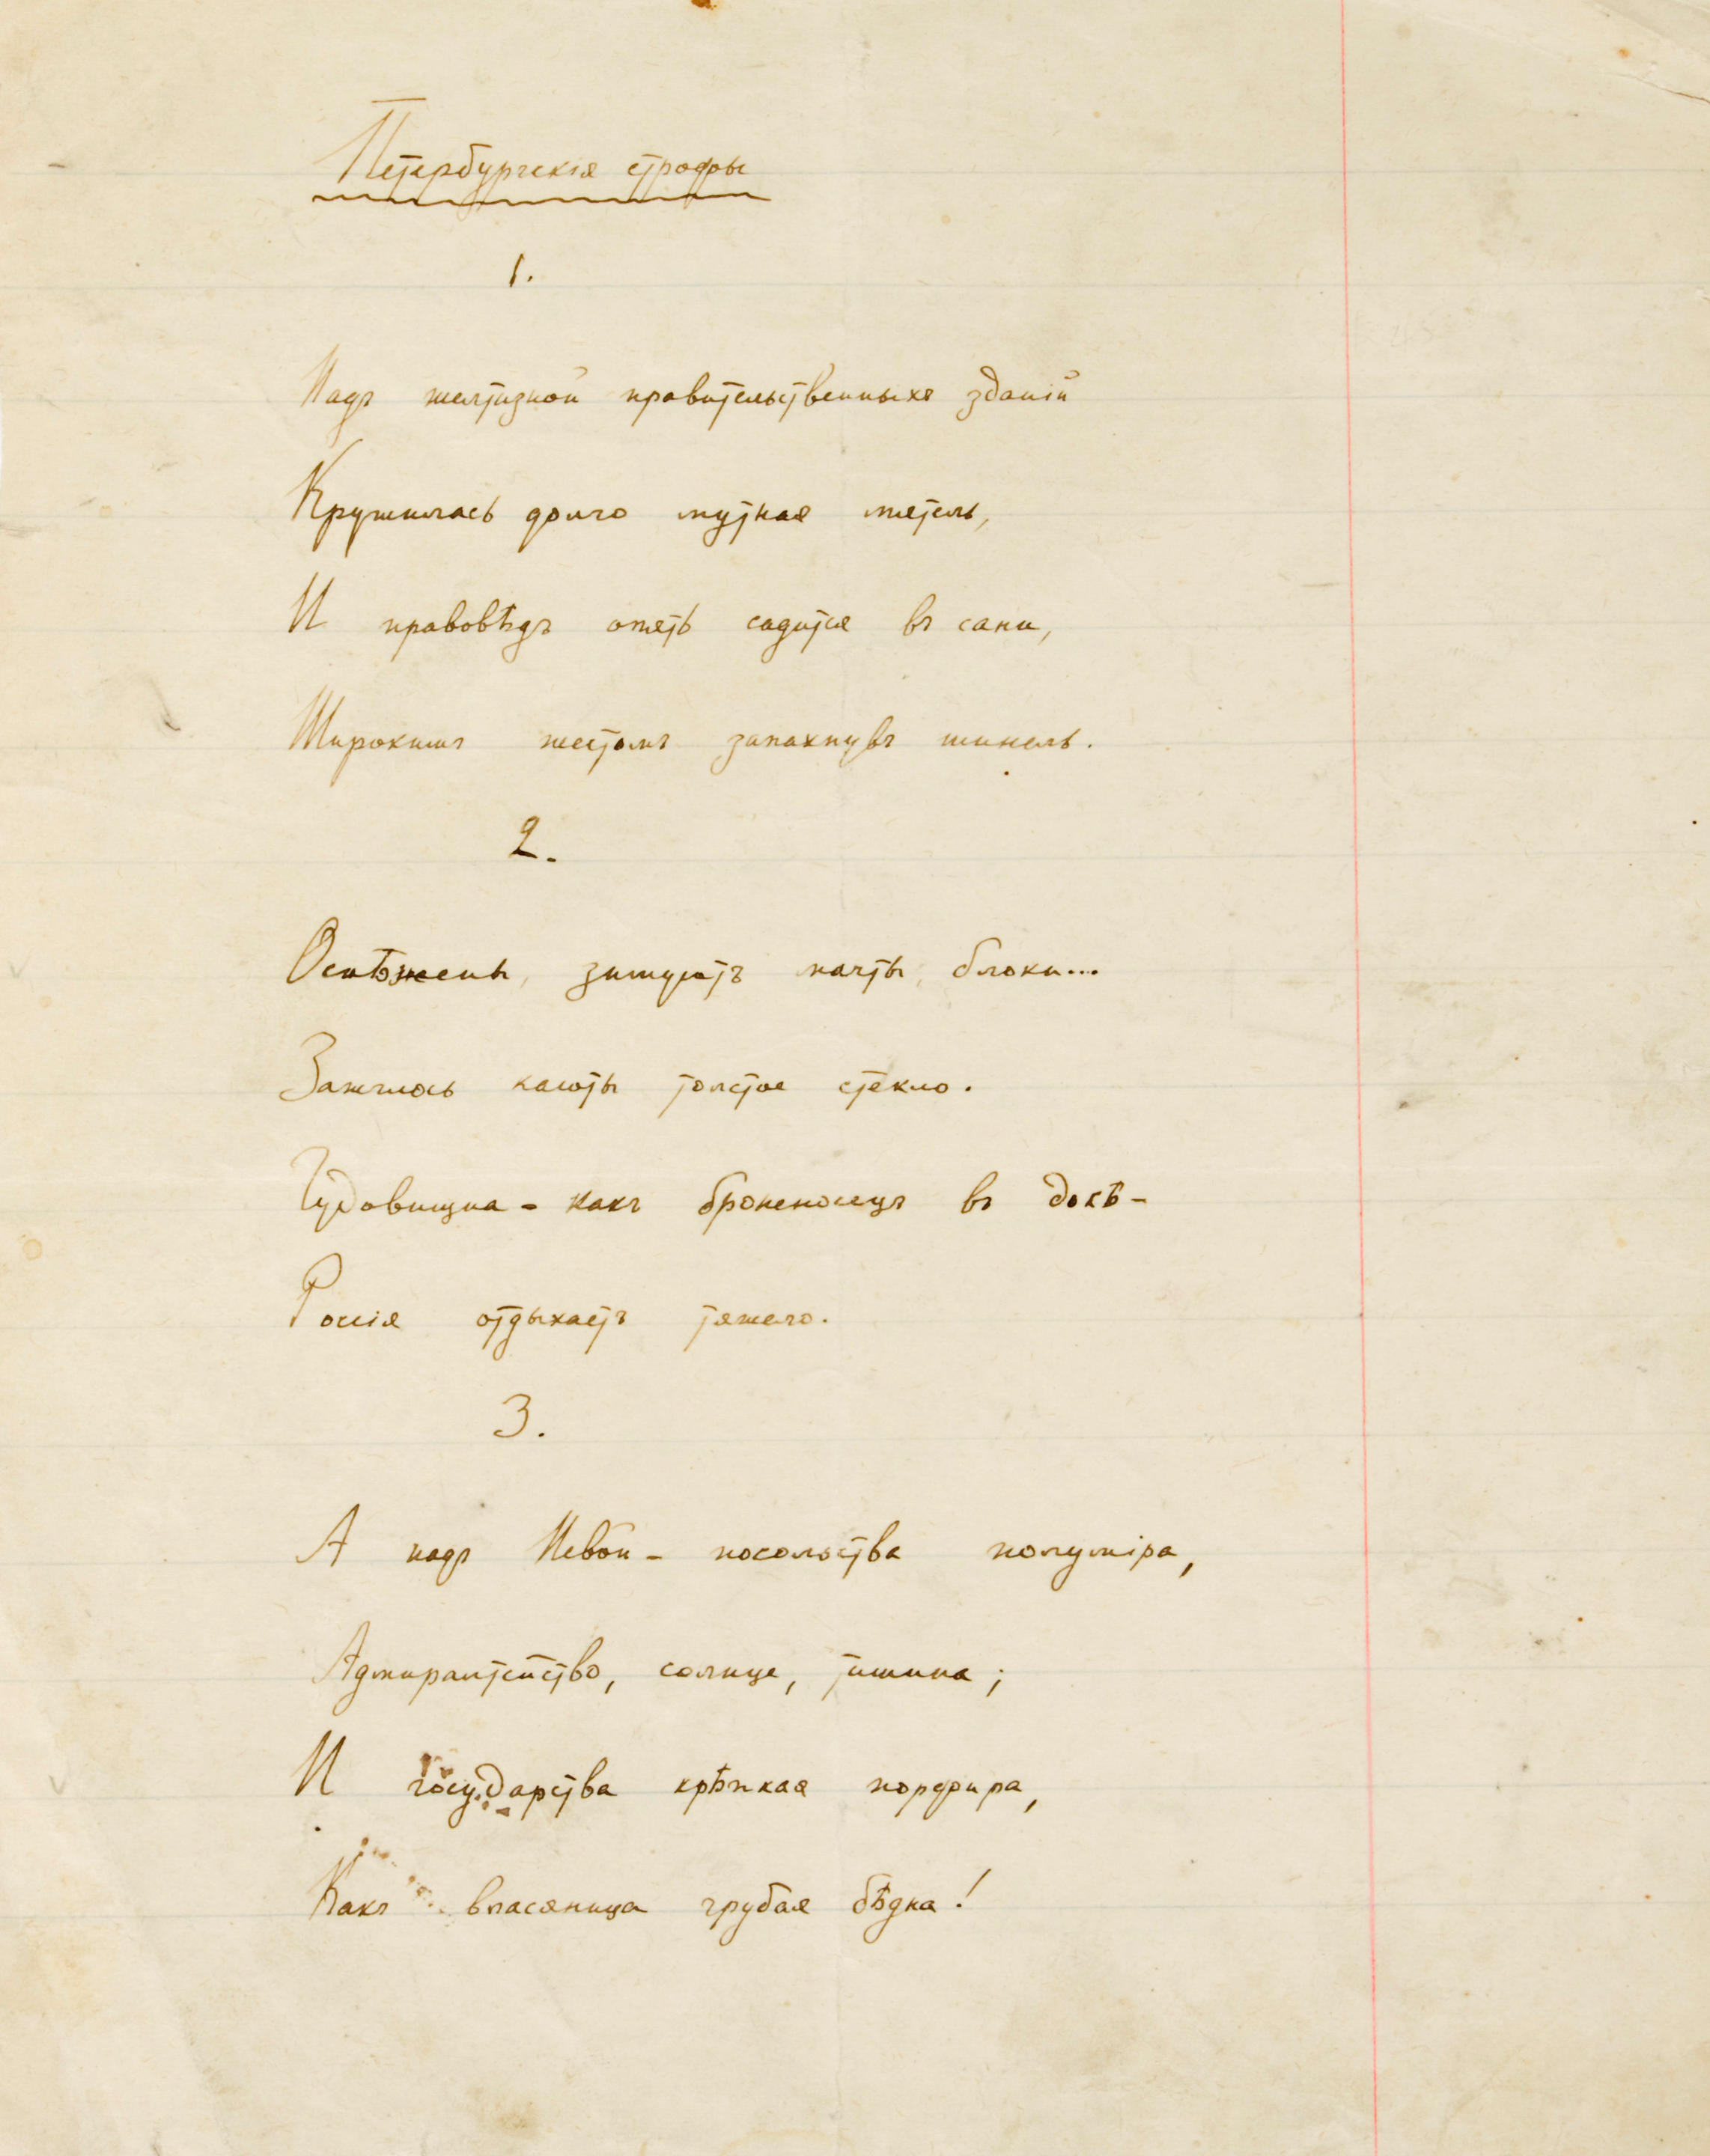 Петербургскія строфы
1.
Надъ желтизной правительственныхъ зданій
Кружилась долго мутная мятель,
И правовѣдъ опять садится въ сани,
Широкимъ жестомъ запахнувъ шинель.
2.
Оснѣжены, зимуютъ мачты, блоки...
Зажглось каюты толстое стекло.
Чудовищна - какъ броненосецъ въ докѣ -
Россія отдыхаетъ тяжело.
3.
А надъ Невой - посольства полуміра,
Адмиралтейство, солнце, тишина;
И государства крѣпкая порфира,
Какъ власяница грубая бѣдна!